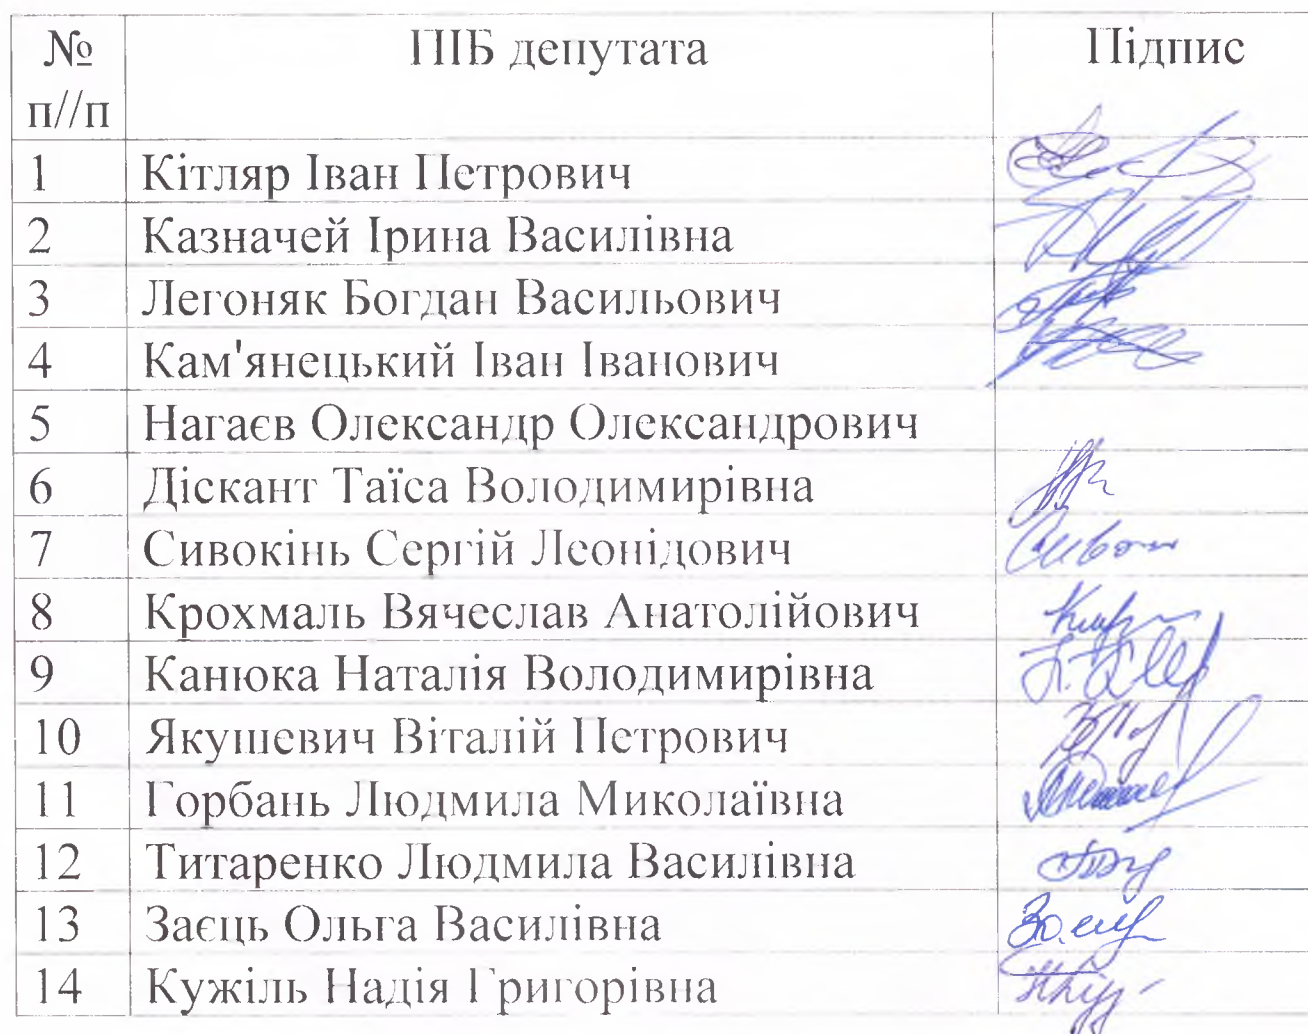 № ПІБ депутата Підпис
п//п
1 Кітляр Іван Петрович
2 Казначей Ірина Василівна
3 Легоняк Богдан Васильович
4 Кам'янецький Іван Іванович
5 Нагаєв Олександр Олександрович
6 Діскант Таїса Володимирівна
7 Сивокінь Сергій Леонідович
8 Крохмаль Вячеслав Анатолійович
9 Канюка Наталія Володимирівна
10 Якушевич Віталій Петрович
11 Горбань Людмила Миколаївна
12 Титаренко Людмила Василівна
13 Заєць Ольга Василівна
14 Кужіль Надія Григорівна